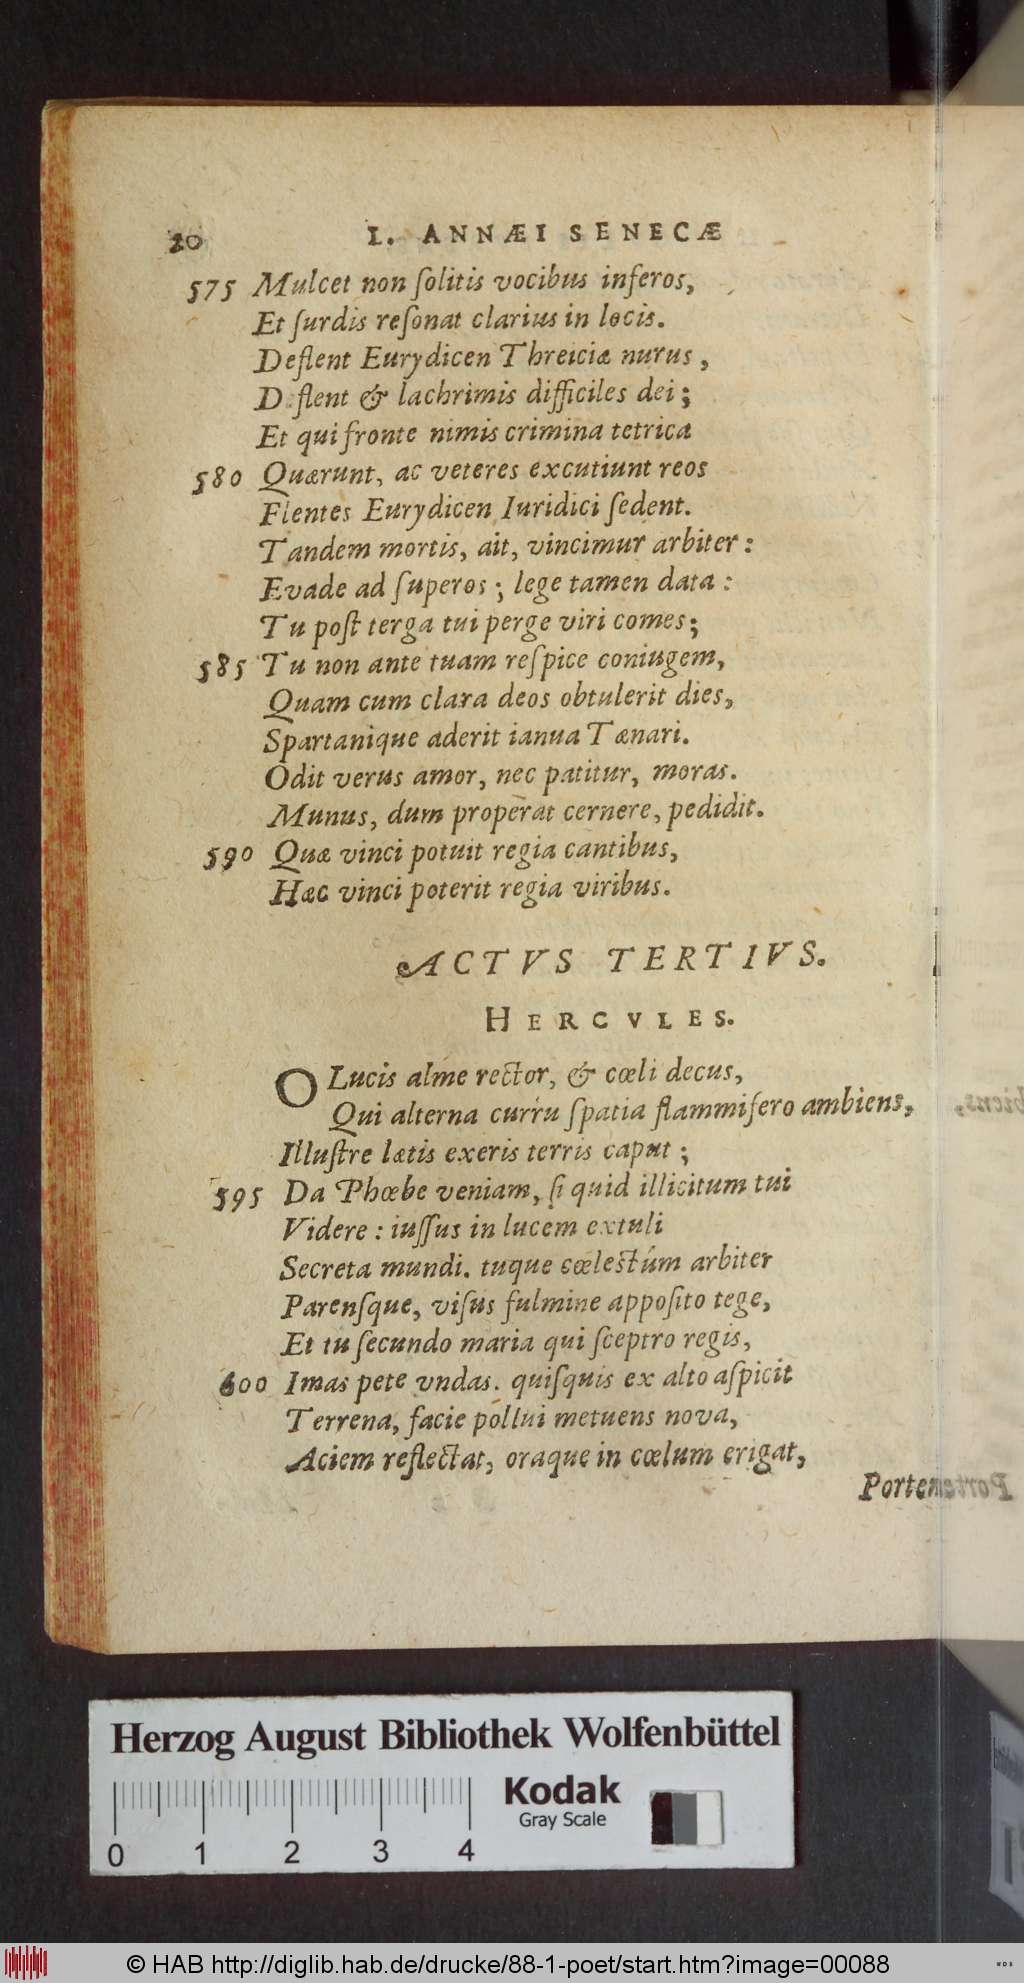 20 L. ANNÆI SENECÆ
575 Mulcet non ſolitis vocibus inferos,
Et ſurdis reſonat clarius in locis.
Deflent Eurydicen Threiciæ nurus,
D flent & lachrimis difficiles dei;
Et qui fronte nimis crimina tetrica
580 Quærunt, ac veteres excutiunt reos
Flentes Eurydicen Iuridici ſedent.
Tandem mortis, ait, vincimur arbiter:
Evade ad ſuperos; lege tamen data:
Tu poſt terga tui perge viri comes;
585 Tu non ante tuam reſpice coniugem,
Quam cum clara deos obtulerit dies,
Spartanique aderit ianua Tænari.
Odit verus amor, nec patitur, moras.
Munus, dum properat cernere, pedidit.
590 Quæ vinci potuit regia cantibus,
Hæc vinci poterit regia viribus.
ACTVS TERTIVS.
HERCVLES.
O Lucis alme rector, & cœli decus,
Qui alterna curru ſpatia flammifero ambiens,
Illuſtre lætis exeris terris caput;
595 Da Phœbe veniam, ſi quid illicitum tui
Videre: iuſſus in lucem extuli
Secreta mundi. tuque cœleſtúm arbiter
Parenſque, viſus fulmine appoſito tege,
Et tu ſecundo maria qui ſceptro regis,
600 Imas pete vndas. quiſquis ex alto aſpicit
Terrena, facie pollui metuens nova,
Aciem reflectat, oraque in cœlum erigat,
Portem
Herzog August Bibliothek Wolfenbüttel
Kodak
Gray Scale
0 1 2 3 4
© HAB http://diglib.hab.de/drucke/88-1-poet/start.htm?image=00088